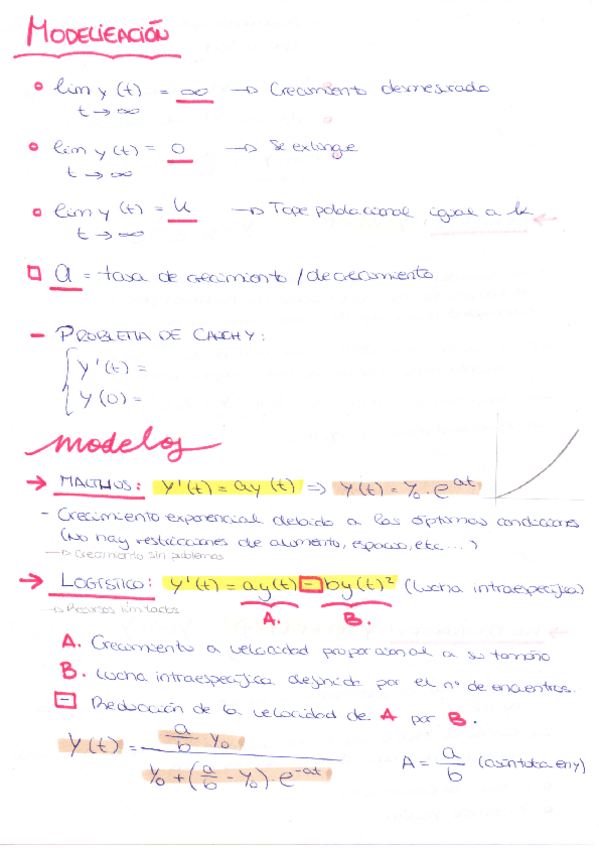 MODELIZACIÓN
lim y(t) = ∞ → Crecimiento desmesurado
t → ∞
lim y(t) = 0 → Se extingue
t → ∞
lim y(t) = K → Tope poblacional igual a k
t → ∞
a = tasa de crecimiento / decrecimiento
- PROBLEMA DE CAUCHY:
y'(t) =
y(0) =
modelos
→ MALTHUS: y'(t) = ay(t) => y(t) = y₀ · e^at
- Crecimiento exponencial debido a las óptimas condiciones
(No hay restricciones de alimento, espacio, etc...)
→ Crecimiento sin problemas
→ LOGÍSTICO: y'(t) = ay(t) - by(t)² (lucha intraespecífica)
→ Recursos limitados
A. B.
A. Crecimiento a velocidad proporcional a su tamaño
B. Lucha intraespecífica definida por el nº de encuentros.
- Reducción de la velocidad de A por B.
y(t) = (a/b y₀) / (y₀ + (a/b - y₀) · e^-at) A = a/b (asíntota en y)